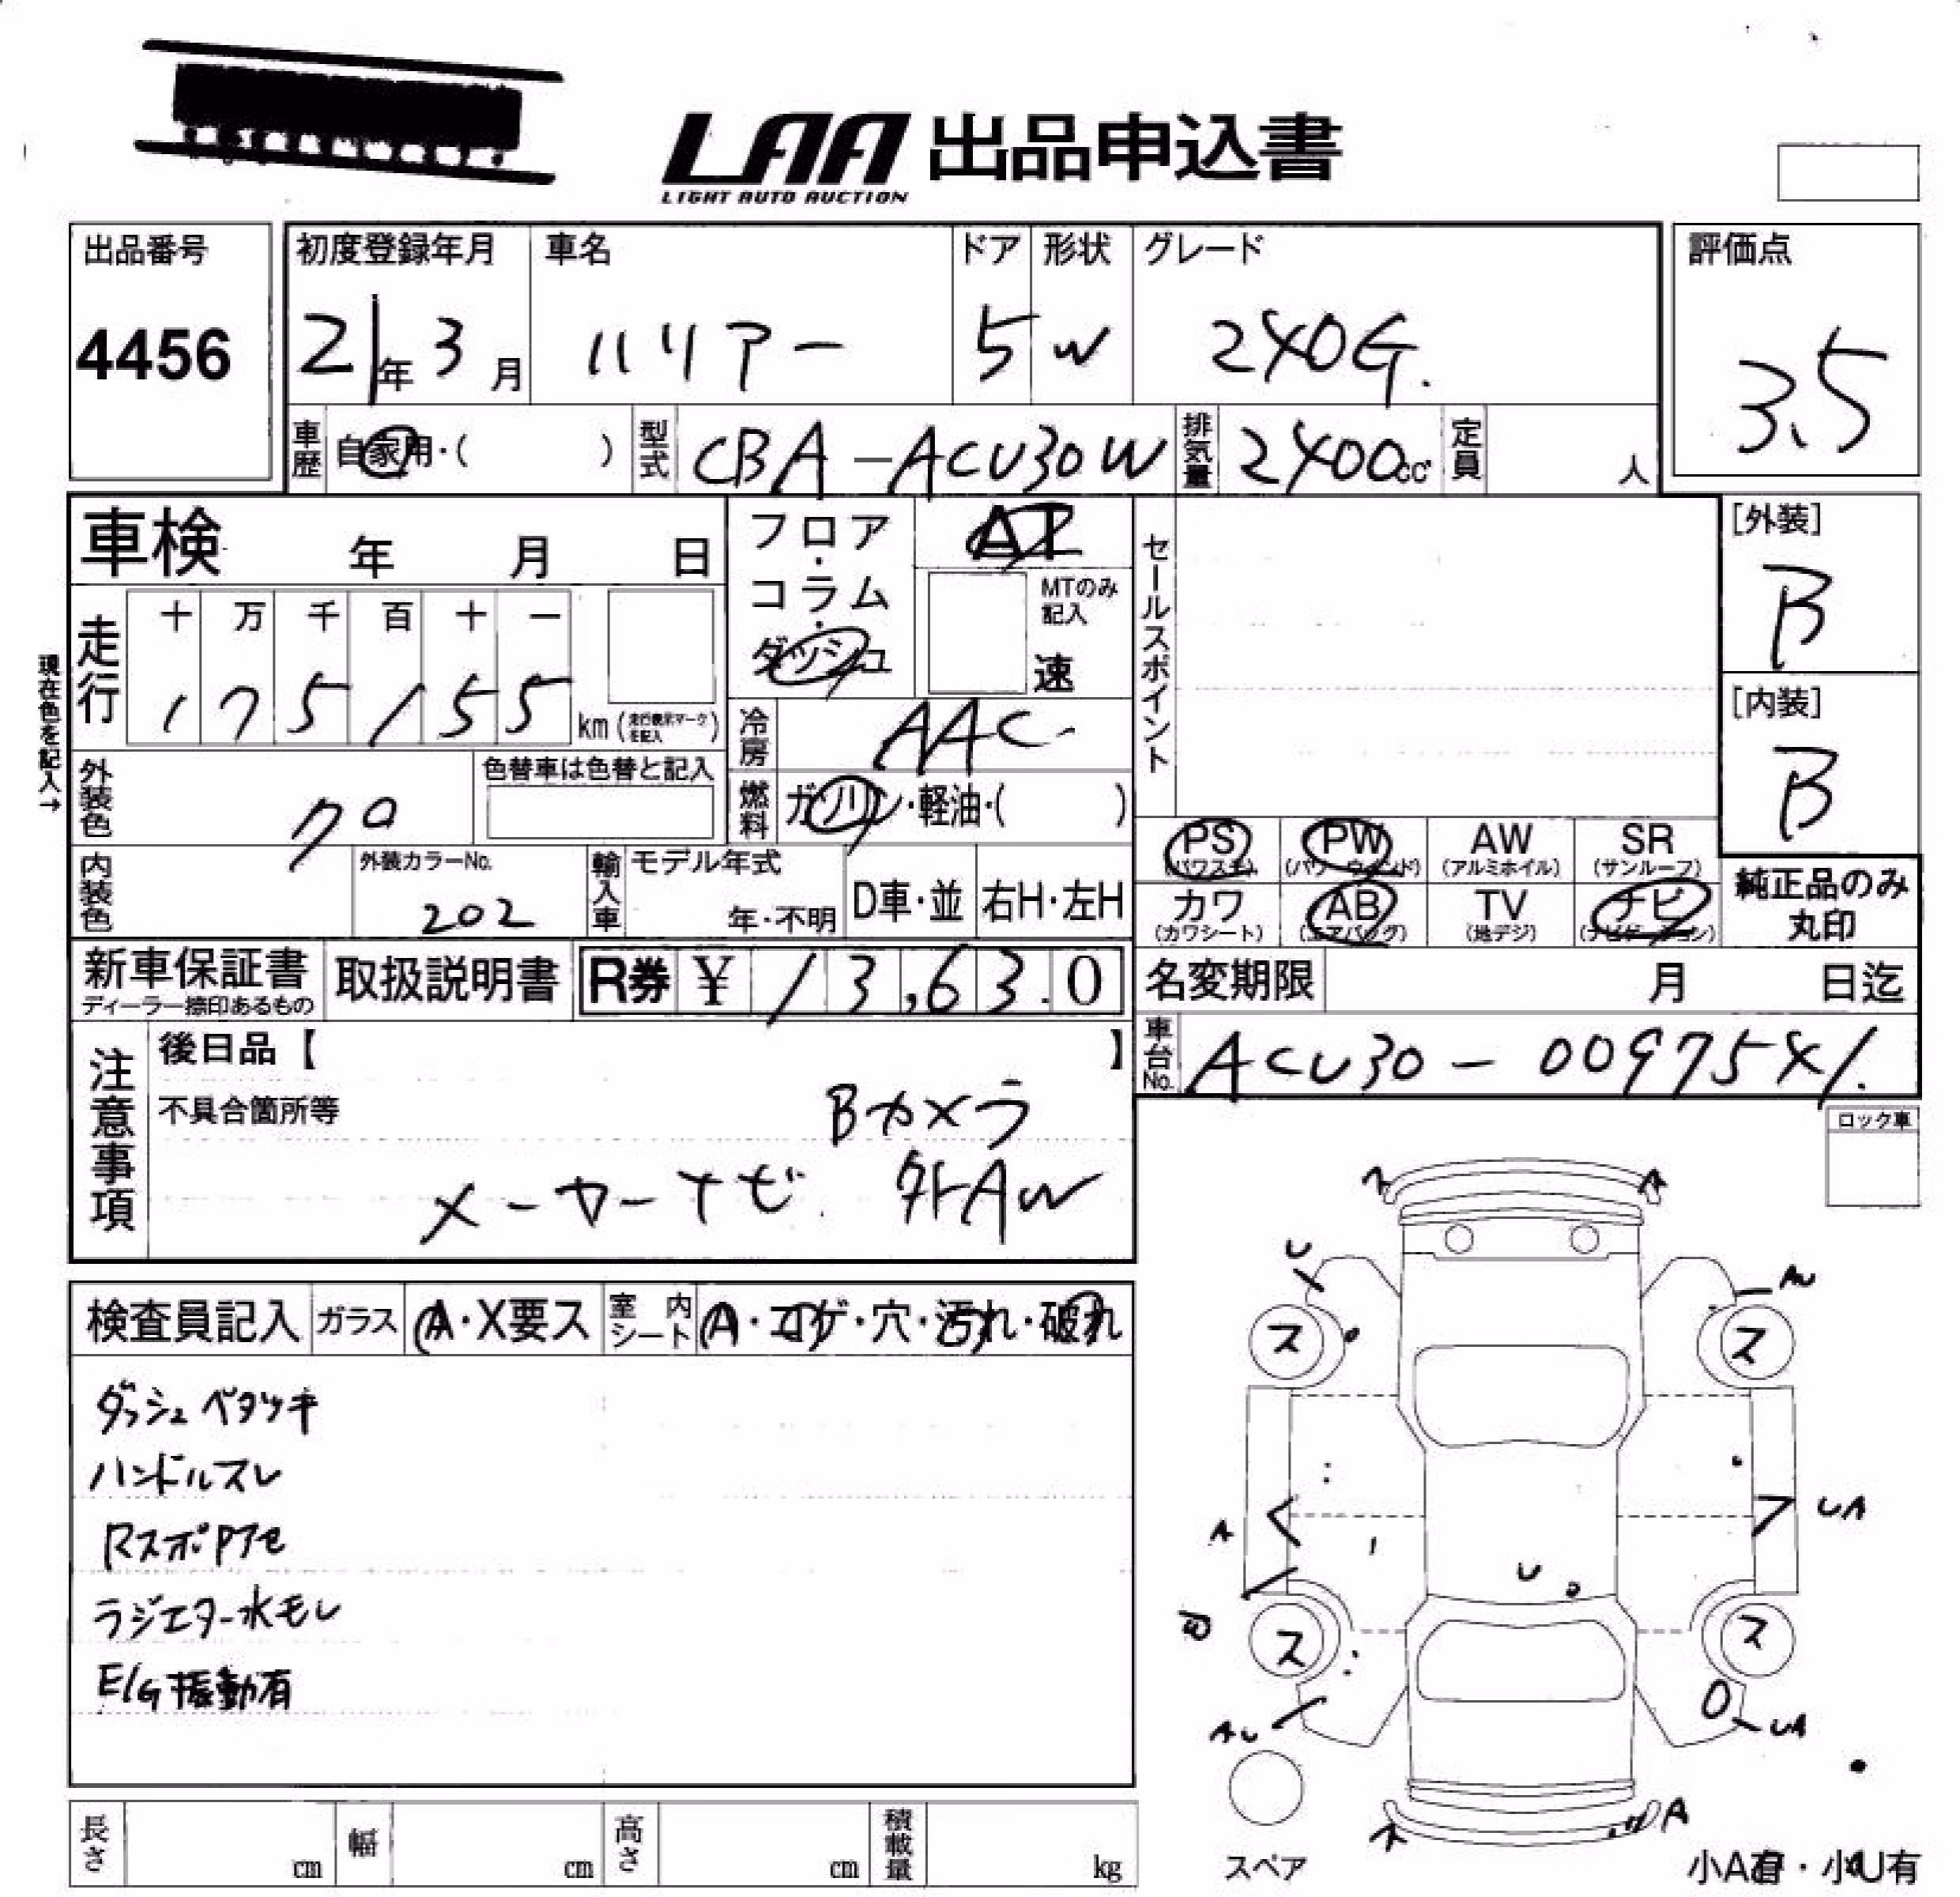 LAA 出品申込書
LIGHT AUTO AUCTION
出品番号
4456
初度登録年月 車名 ドア 形状 グレード
21年 3月 ハリアー 5 W 240G.
評価点
3.5
車歴 自家用・( ) 型式 CBA-ACU30W 排気量 2400cc 定員 人
車検 年 月 日
フロア・コラム・ダッシュ
AT
MTのみ記入
速
セールスポイント
[外装]
B
[内装]
B
現在色を記入→
走行 十 万 千 百 十 一
175155 km (走行表示マークを記入)
冷房 AAC
外装色 クロ 色替車は色替と記入
燃料 ガソリン・軽油・( )
内装色 外装カラーNo. 202
輸入車 モデル年式 年・不明 D車・並 右H・左H
PS (パワステ) PW (パワーウィンド) AW (アルミホイル) SR (サンルーフ)
カワ (カワシート) AB (エアバッグ) TV (地デジ) ナビ (ナビゲーション)
純正品のみ
丸印
新車保証書 取扱説明書 R券 ¥ 13,630
ディーラー捺印あるもの
名変期限 月 日迄
車台No. ACU30-0097541.
注意事項
後日品【 】
不具合箇所等
Bカメラ
メーカーナビ 外AW
ロック車
検査員記入 ガラス A・X要ス 室内シート A・コゲ・穴・汚れ・破れ
ダッシュベタツキ
ハンドルスレ
ラジエター水モレ
E/G振動有
A A
U AU
ス ス
A UA
U
ス ス
AU UA
A A
スペア
小A有・小U有
長さ cm 幅 cm 高さ cm 積載量 kg